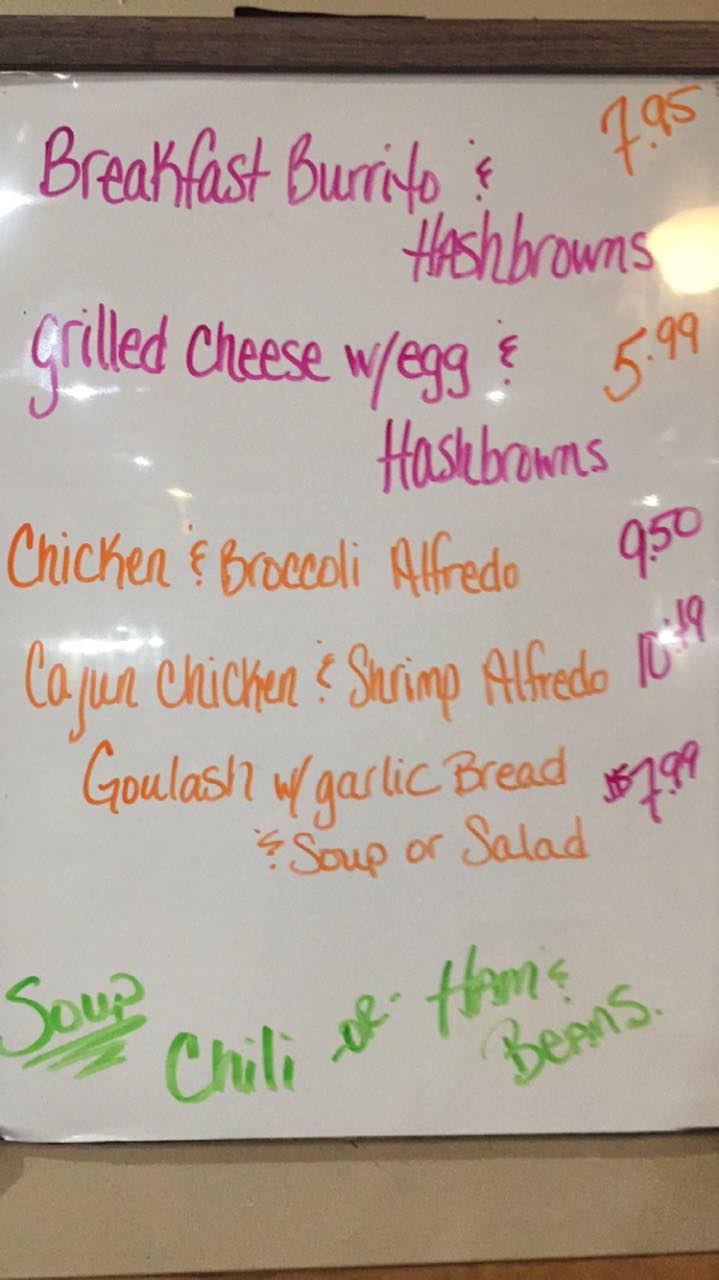 Breakfast Burrito & 7.95
Hashbrowns
grilled cheese w/egg & 5.99
Hashbrowns
Chicken & Broccoli Alfredo 9.50
Cajun Chicken & Shrimp Alfredo 10.49
Goulash w/ garlic Bread $7.99
& Soup or Salad
Soup
Chili or Ham &
Beans.